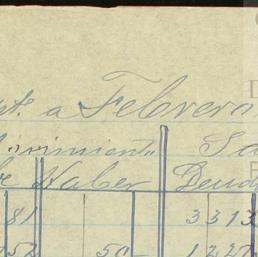 pt. a Febrero
Movimiento Sa
be Haber Deudo
81 3313
52 50 1227